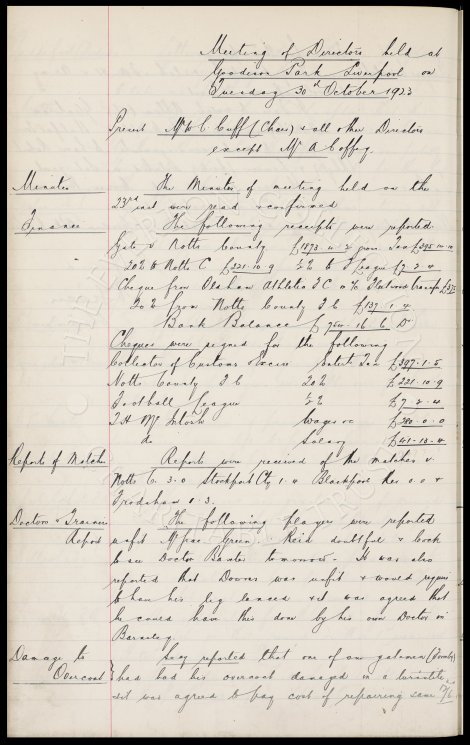 Meeting of Directors held at
Goodison Park Liverpool on
Tuesday 30th October 1923
Present Mr W C Cuff (Chair) & all other Directors
except Mr A Coffey.
Minutes The Minutes of meeting held on the
23rd inst were read & confirmed
Finance The following receipts were reported.
Gate v Notts County £1873 . 4 . 2 Tax £395
20% to Notts C £221 . 10 . 9 ½% to F League £7 . 2 . 4
Cheque from Oldham Athletic F C a/c transfer
20% from Notts County F C £137 . 1 . 4
Bank Balance £ 16 . 6 Dr
Cheques were signed for the following
Collector of Customs & Excise Entert. Tax £397 . 1 . 5
Notts County F C 20% £221 . 10 . 9
Football League ½% £7 . 2 . 4
T H McIntosh Wages &c £280 . 0 . 0
do Salary £41 . 13 . 4
Report of Matches Reports were received of the matches v.
Notts C. 3.0 Stockport Cty 1 4 Blackpool Res 0.0 &
Frodsham 1 3.
Doctors & Trainers The following players were reported
Report unfit Messrs Green. Reid doubtful &
to see Doctor Baxter tomorrow - It was also
reported that Downs was unfit & would require
to have his leg lanced & it was agreed that
he could have this done by his own Doctor in
Barnsley
Damage to Secy reported that one of our gatemen
Overcoat had had his overcoat damaged in a turnstile
& it was agreed to pay cost of repairing same